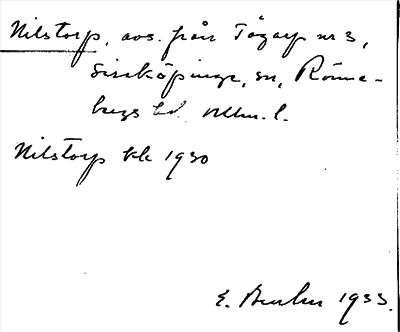 Nilstorp, avs. från Tågarp nr 3,
Simlköpinge, sn, Rönne-
bergs hd. Mlm. l.
Nilstorp kk 1930
E. 1933.